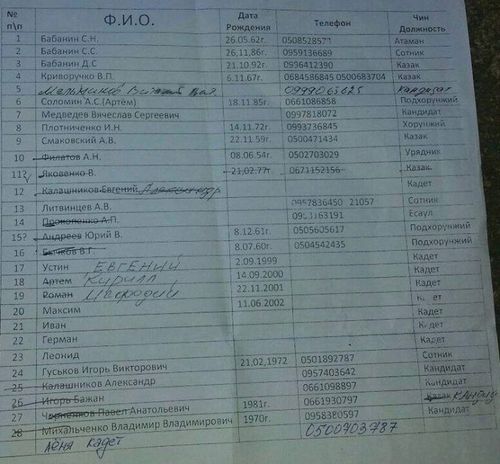 № п\п Ф.И.О. Дата Рождения Телефон Чин Должность
1 Бабанин С.Н. 26.05.62г. 0508528571 Атаман
2 Бабанин С.С. 26,11,86г. 0959136689 Сотник
3 Бабанин Д.С 21.10.92г. 0996412390 Казак
4 Криворучко В.П. 6.11.67г. 0684586845 0500683704 Казак
5 Мельников 0999065625 Кандидат
6 Соломин А.С.(Артём) 18.11.85г. 0661086858 Подхорунжий
7 Медведев Вячеслав Сергеевич 0997818072 Кандидат
8 Плотниченко И.Н. 14.11.72г. 0993736845 Хорунжий
9 Смаковский А.В. 22.11.59г. 0500471434 Казак
10 Филатов А.Н. 08.06.54г. 0502703029 Урядник
11? Яковенко В. 21.02.77г. 0671152156 Казак
12 Калашников Евгений Александр Кадет
13 Литвинцев А.В. 0957836450 21057 Сотник
14 Прокопенко А.П. Есаул
15? Андреев Юрий В. 8.12.61г. 0505605617 Подхорунжий
16 Бычков В.Г 8.07.60г. 0504542435 Подхорунжий
17 Устин ЕВГЕНИЙ 2.09.1999 Кадет
18 Артем Кирилл 14.09.2000 Кадет
19 Роман 22.11.2001 Кадет
20 Максим 11.06.2002 Кадет
21 Иван Кадет
22 Герман Кадет
23 Леонид Кадет
24 Гуськов Игорь Викторович 21,02,1972 0501892787 Сотник
25 Калашников Александр 0957403642 Кандидат
26 Игорь Бажан 0661098897 Кандидат
27 Черненков Павел Анатольевич 1981г. 0661930797 Казак Кандид
28 Михальченко Владимир Владимирович 1970г. 0958380597 Кандидат
Лёня кадет 0500703787